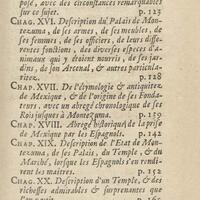 posé, avec des circonstances remarquables
sur ce sujet. p. 123
CHAP. XVI. Description du Palais de Mon-
tezuma, de ses armes, de ses meubles, de
ses femmes, de ses officiers, de leurs diffe-
rentes fonctions, des diverses especes d'a-
nimaux qui y étoient nourris, de ses jar-
dins, de son Arcenal, & autres particula-
ritez. p. 128
CHAP. XVII. De l'étymologie & antiquitez
de Mexique, & de l'origine de ses Fonda-
teurs: avec un abregé chronologique de ses
Rois jusques à Montezuma. p. 139
CHAP. XVIII. Abregé historique de la prise
de Mexique par les Espagnols. p. 142
CHAP. XIX. Description de l'Etat de Mon-
tezuma, de ses Palais, du Temple, & du
Marché, lorsque les Espagnols s'en rendi-
rent les maitres. p. 152
CHAP. XX. Description d'un Temple, & des
richesses admirables & surprenantes que
p. 165